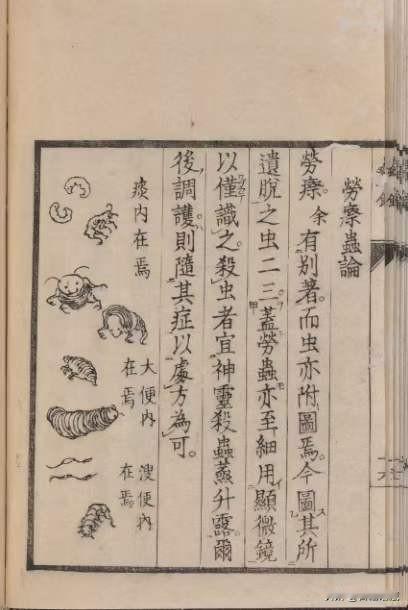 勞瘵蟲論
勞瘵。余有別著。而虫亦附圖焉。今圖其所
遺脫之虫二三。蓋勞蟲亦至細。用顯微鏡
以僅識之。殺虫者宜神靈殺蟲蒸升露。爾
後調護。則隨其症以處方為可。
痰内在焉
大便内
在焉
溲便内
在焉